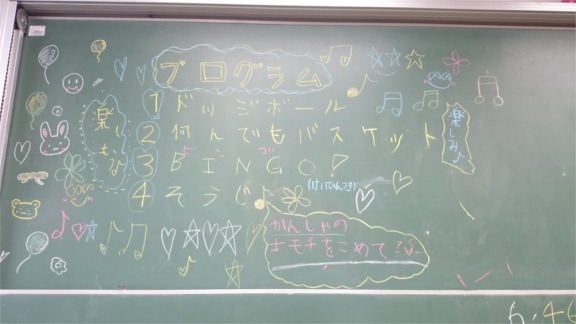 プログラム
① ドッジボール
② 何んでもバスケット
③ BINGO!
④ そうじ♪
(けいひんつき)
楽しもな
楽しみ♪
かんしゃの
キモチをこめて